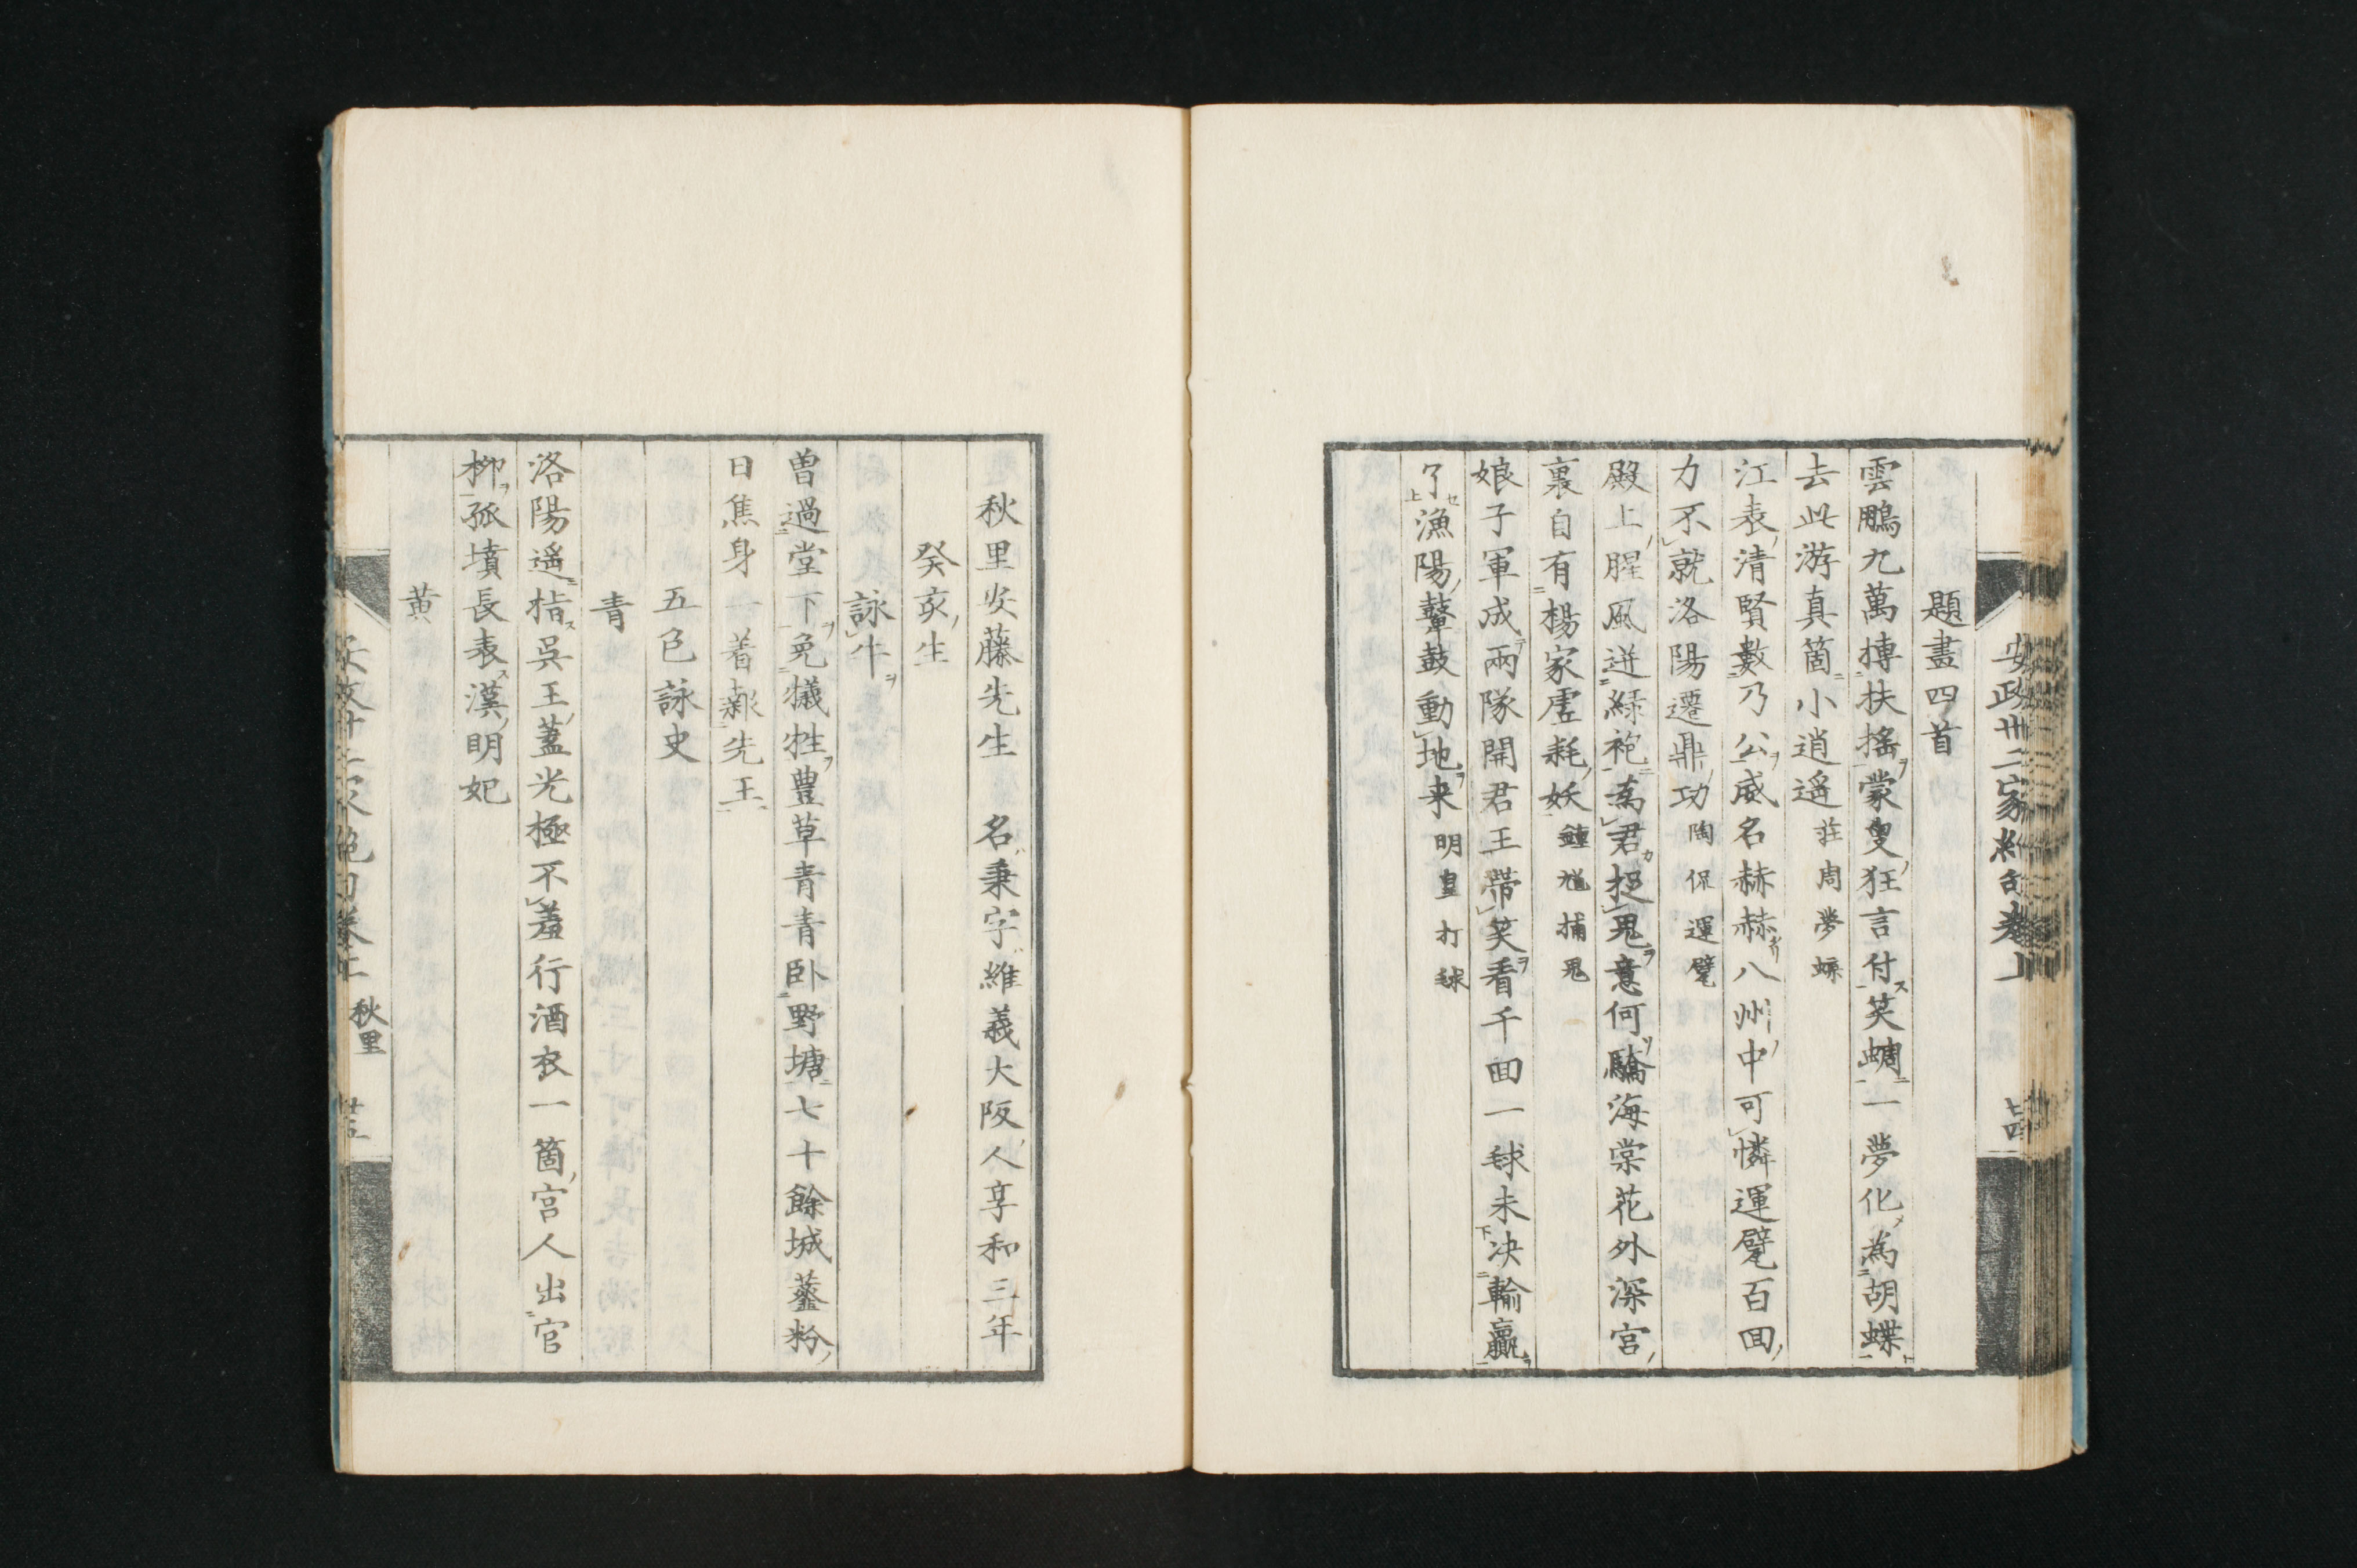 題畫四首
雲鵬九萬摶扶搖蒙叟狂言付笑蜩一夢化為胡蝶
去此游真箇小逍遙 莊周夢蝶
江表清賢數乃公威名赫赫八州中可憐運甓百回
力不就洛陽遷鼎功 陶侃運甓
殿上腥風迸緑袍為君捉鬼意何驕海棠花外深宮
裏自有楊家虛耗妖 鍾馗捕鬼
娘子軍成兩隊開君王帶笑看千回一毬未决輸贏
了漁陽鼙鼓動地來 明皇打毬
秋里安藤先生 名秉字維義大阪人享和三年
癸亥生
詠牛
曽過堂下免犧牲豊草青青卧野塘七十餘城虀粉
日焦身一着報先王
五色詠史
青
洛陽遥指吳王蓋光極不羞行酒衣一箇宮人出官
柳孤墳長表漢明妃
黃
秋里